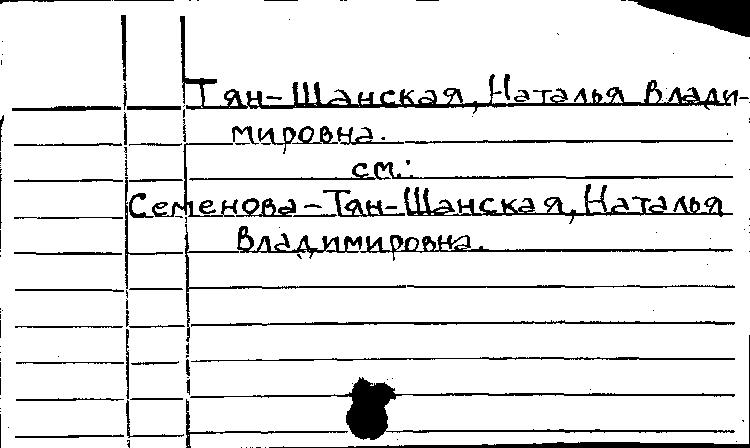 Тян-Шанская, Наталья Влади-
мировна.
см.:
Семенова-Тян-Шанская, Наталья
Владимировна.